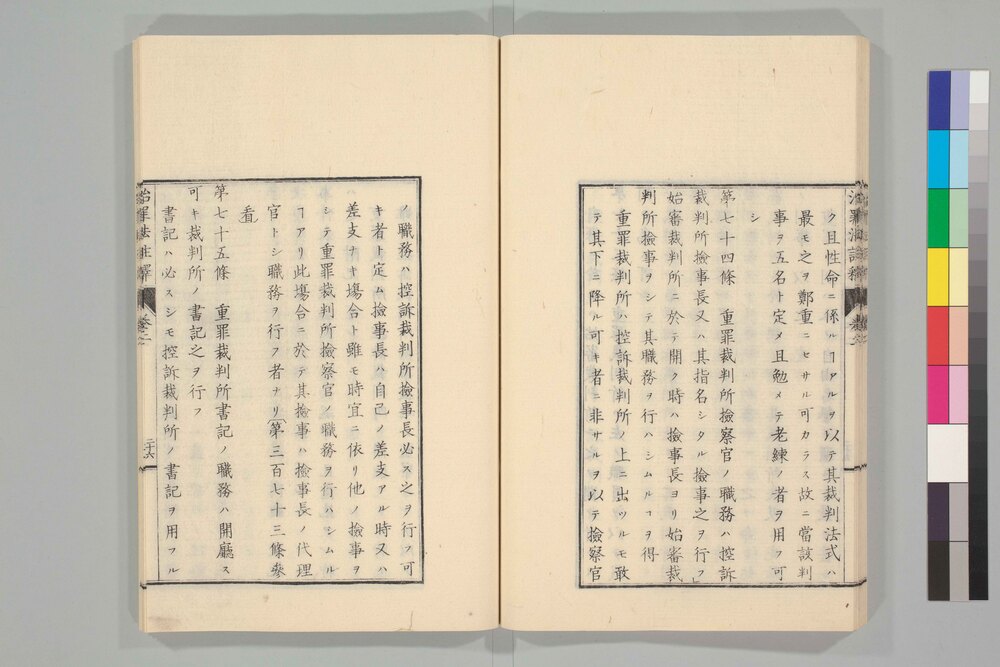 ク且性命ニ係ルヿアルヲ以テ其裁判法式ハ
最モ之ヲ鄭重ニセサル可カラス故ニ當該判
事ヲ五名ト定メ且勉メテ老練ノ者ヲ用フ可
シ
第七十四條　重罪裁判所撿察官ノ職務ハ控訴
裁判所撿事長又ハ其指名シタル撿事之ヲ行フ」
始審裁判所ニ於テ開ク時ハ撿事長ヨリ始審裁
判所撿事ヲシテ其職務ヲ行ハシムルヿヲ得
重罪裁判所ハ控訴裁判所ノ上ニ出ツルモ敢
テ其下ニ降ル可キ者ニ非サルヲ以テ撿察官
ノ職務ハ控訴裁判所撿事長必ス之ヲ行フ可
キ者ト定ム撿事長ハ自己ノ差支アル時又ハ
差支ナキ塲合ト雖モ時宜ニ依リ他ノ撿事ヲ
シテ重罪裁判所撿察官ノ職務ヲ行ハシムル
ヿアリ此塲合ニ於テ其撿事ハ撿事長ノ代理
官トシ職務ヲ行フ者ナリ（第三百七十三條參
看
第七十五條　重罪裁判所書記ノ職務ハ開廳ス
可キ裁判所ノ書記之ヲ行フ
書記ハ必スシモ控訴裁判所ノ書記ヲ用フル
治罪法註釋　卷之二　二十六